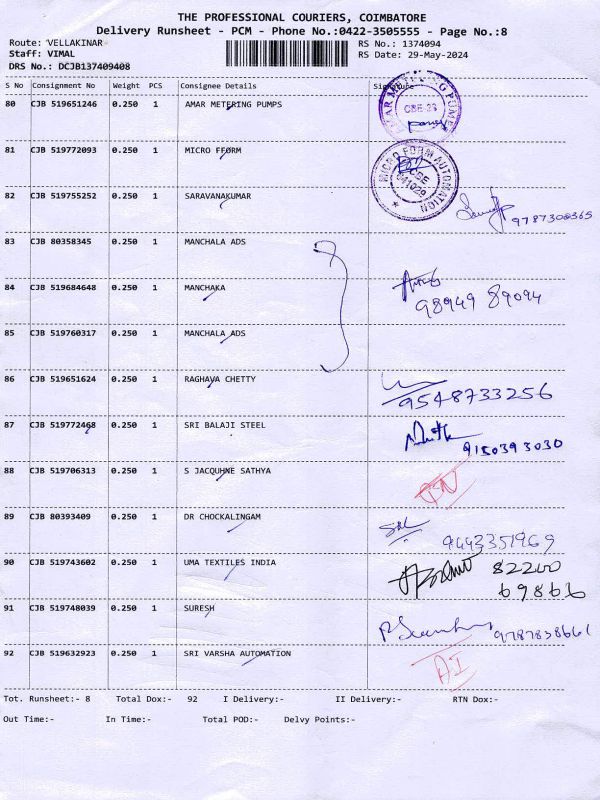 THE PROFESSIONAL COURIERS, COIMBATORE
Delivery Runsheet - PCM - Phone No.:0422-3505555 - Page No.:8
Route: VELLAKINAR RS No.: 1374094
Staff: VIMAL RS Date: 29-May-2024
DRS No.: DCJB137409408
S No Consignment No Weight PCS Consignee Details Signature
80 CJB 519651246 0.250 1 AMAR METERING PUMPS
CBE-23
81 CJB 519772093 0.250 1 MICRO FFORM
MICRO FORM AUTOMATION
CBE
641029
82 CJB 519755252 0.250 1 SARAVANAKUMAR
9787308365
83 CJB 80358345 0.250 1 MANCHALA ADS
84 CJB 519684648 0.250 1 MANCHAKA
98949 89094
85 CJB 519760317 0.250 1 MANCHALA ADS
86 CJB 519651624 0.250 1 RAGHAVA CHETTY
9548733256
87 CJB 519772468 0.250 1 SRI BALAJI STEEL
9150393030
88 CJB 519706313 0.250 1 S JACQUHNE SATHYA
89 CJB 80393409 0.250 1 DR CHOCKALINGAM
9443351969
90 CJB 519743602 0.250 1 UMA TEXTILES INDIA
82200
69866
91 CJB 519748039 0.250 1 SURESH
9787838661
92 CJB 519632923 0.250 1 SRI VARSHA AUTOMATION
Tot. Runsheet:- 8 Total Dox:- 92 I Delivery:- II Delivery:- RTN Dox:-
Out Time:- In Time:- Total POD:- Delvy Points:-